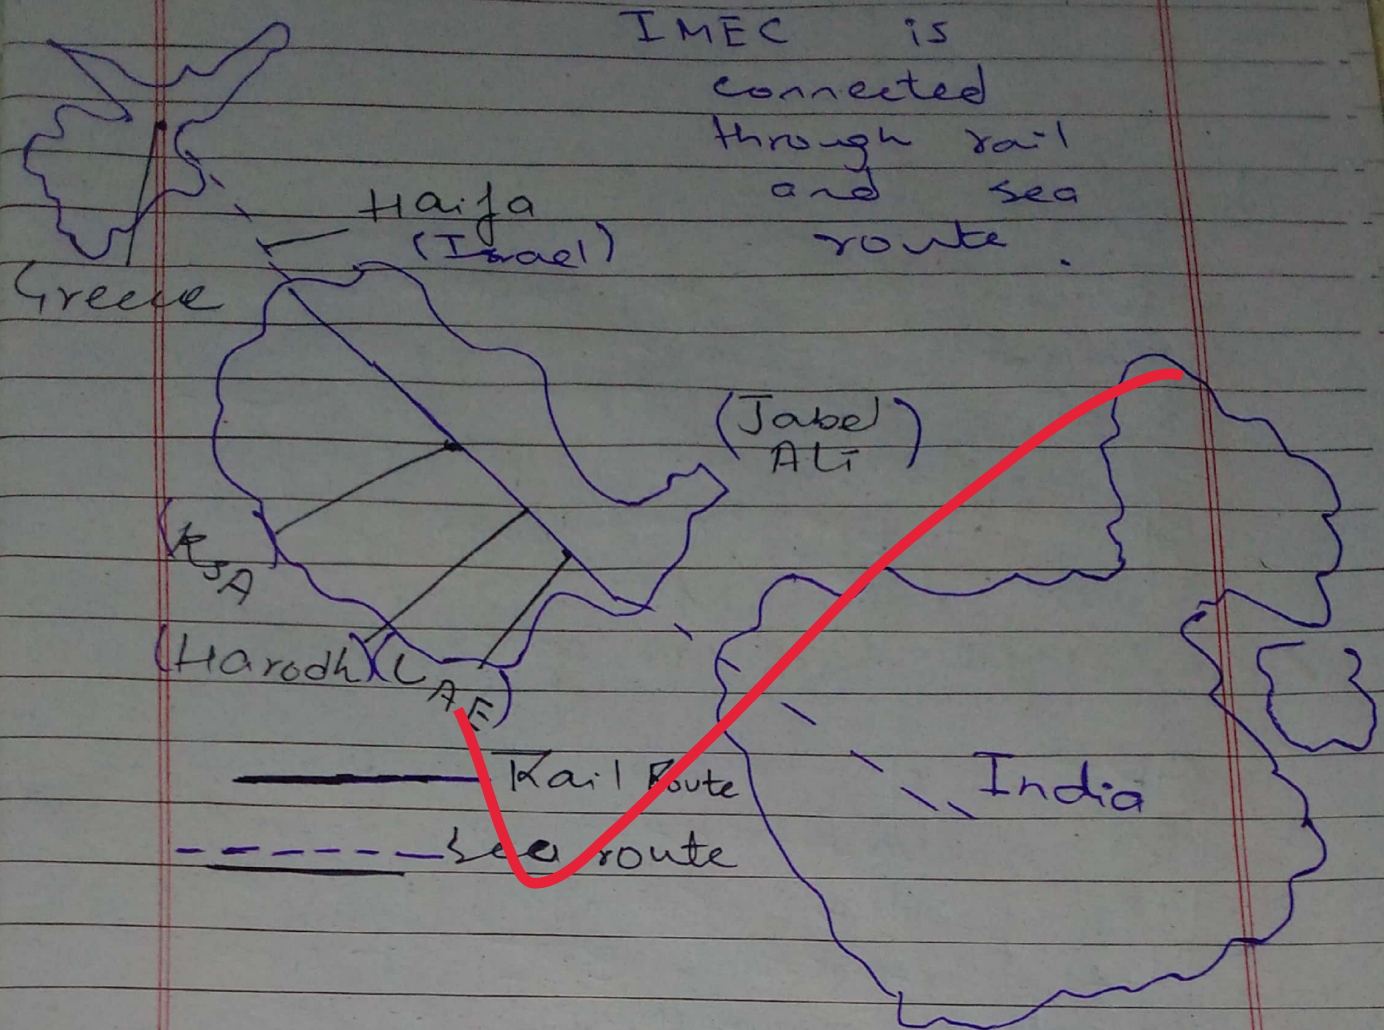 IMEC is
connected
through rail
and sea
route.
Haifa
(Israel)
Greece
(Jabel
Ali)
(KSA)
(Harodh) (UAE)
Rail Route
Sea route
India